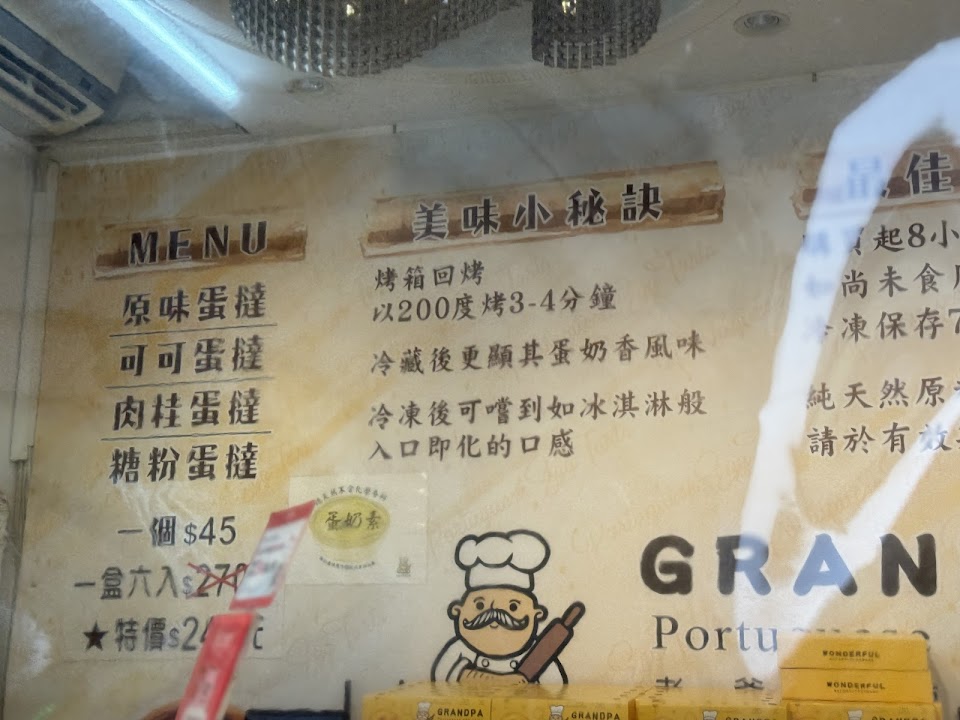 MENU
原味蛋撻
可可蛋撻
肉桂蛋撻
糖粉蛋撻
一個$45
一盒六入$270
★特價$24
蛋奶素
美味小秘訣
烤箱回烤
以200度烤3-4分鐘
冷藏後更顯其蛋奶香風味
冷凍後可嚐到如冰淇淋般
入口即化的口感
佳
起8小
尚未食
冷凍保存7
純天然原
請於有效
GRAN
Portu
WONDERFUL
WONDERFUL
GRANDPA
GRANDPA
GRANDPA